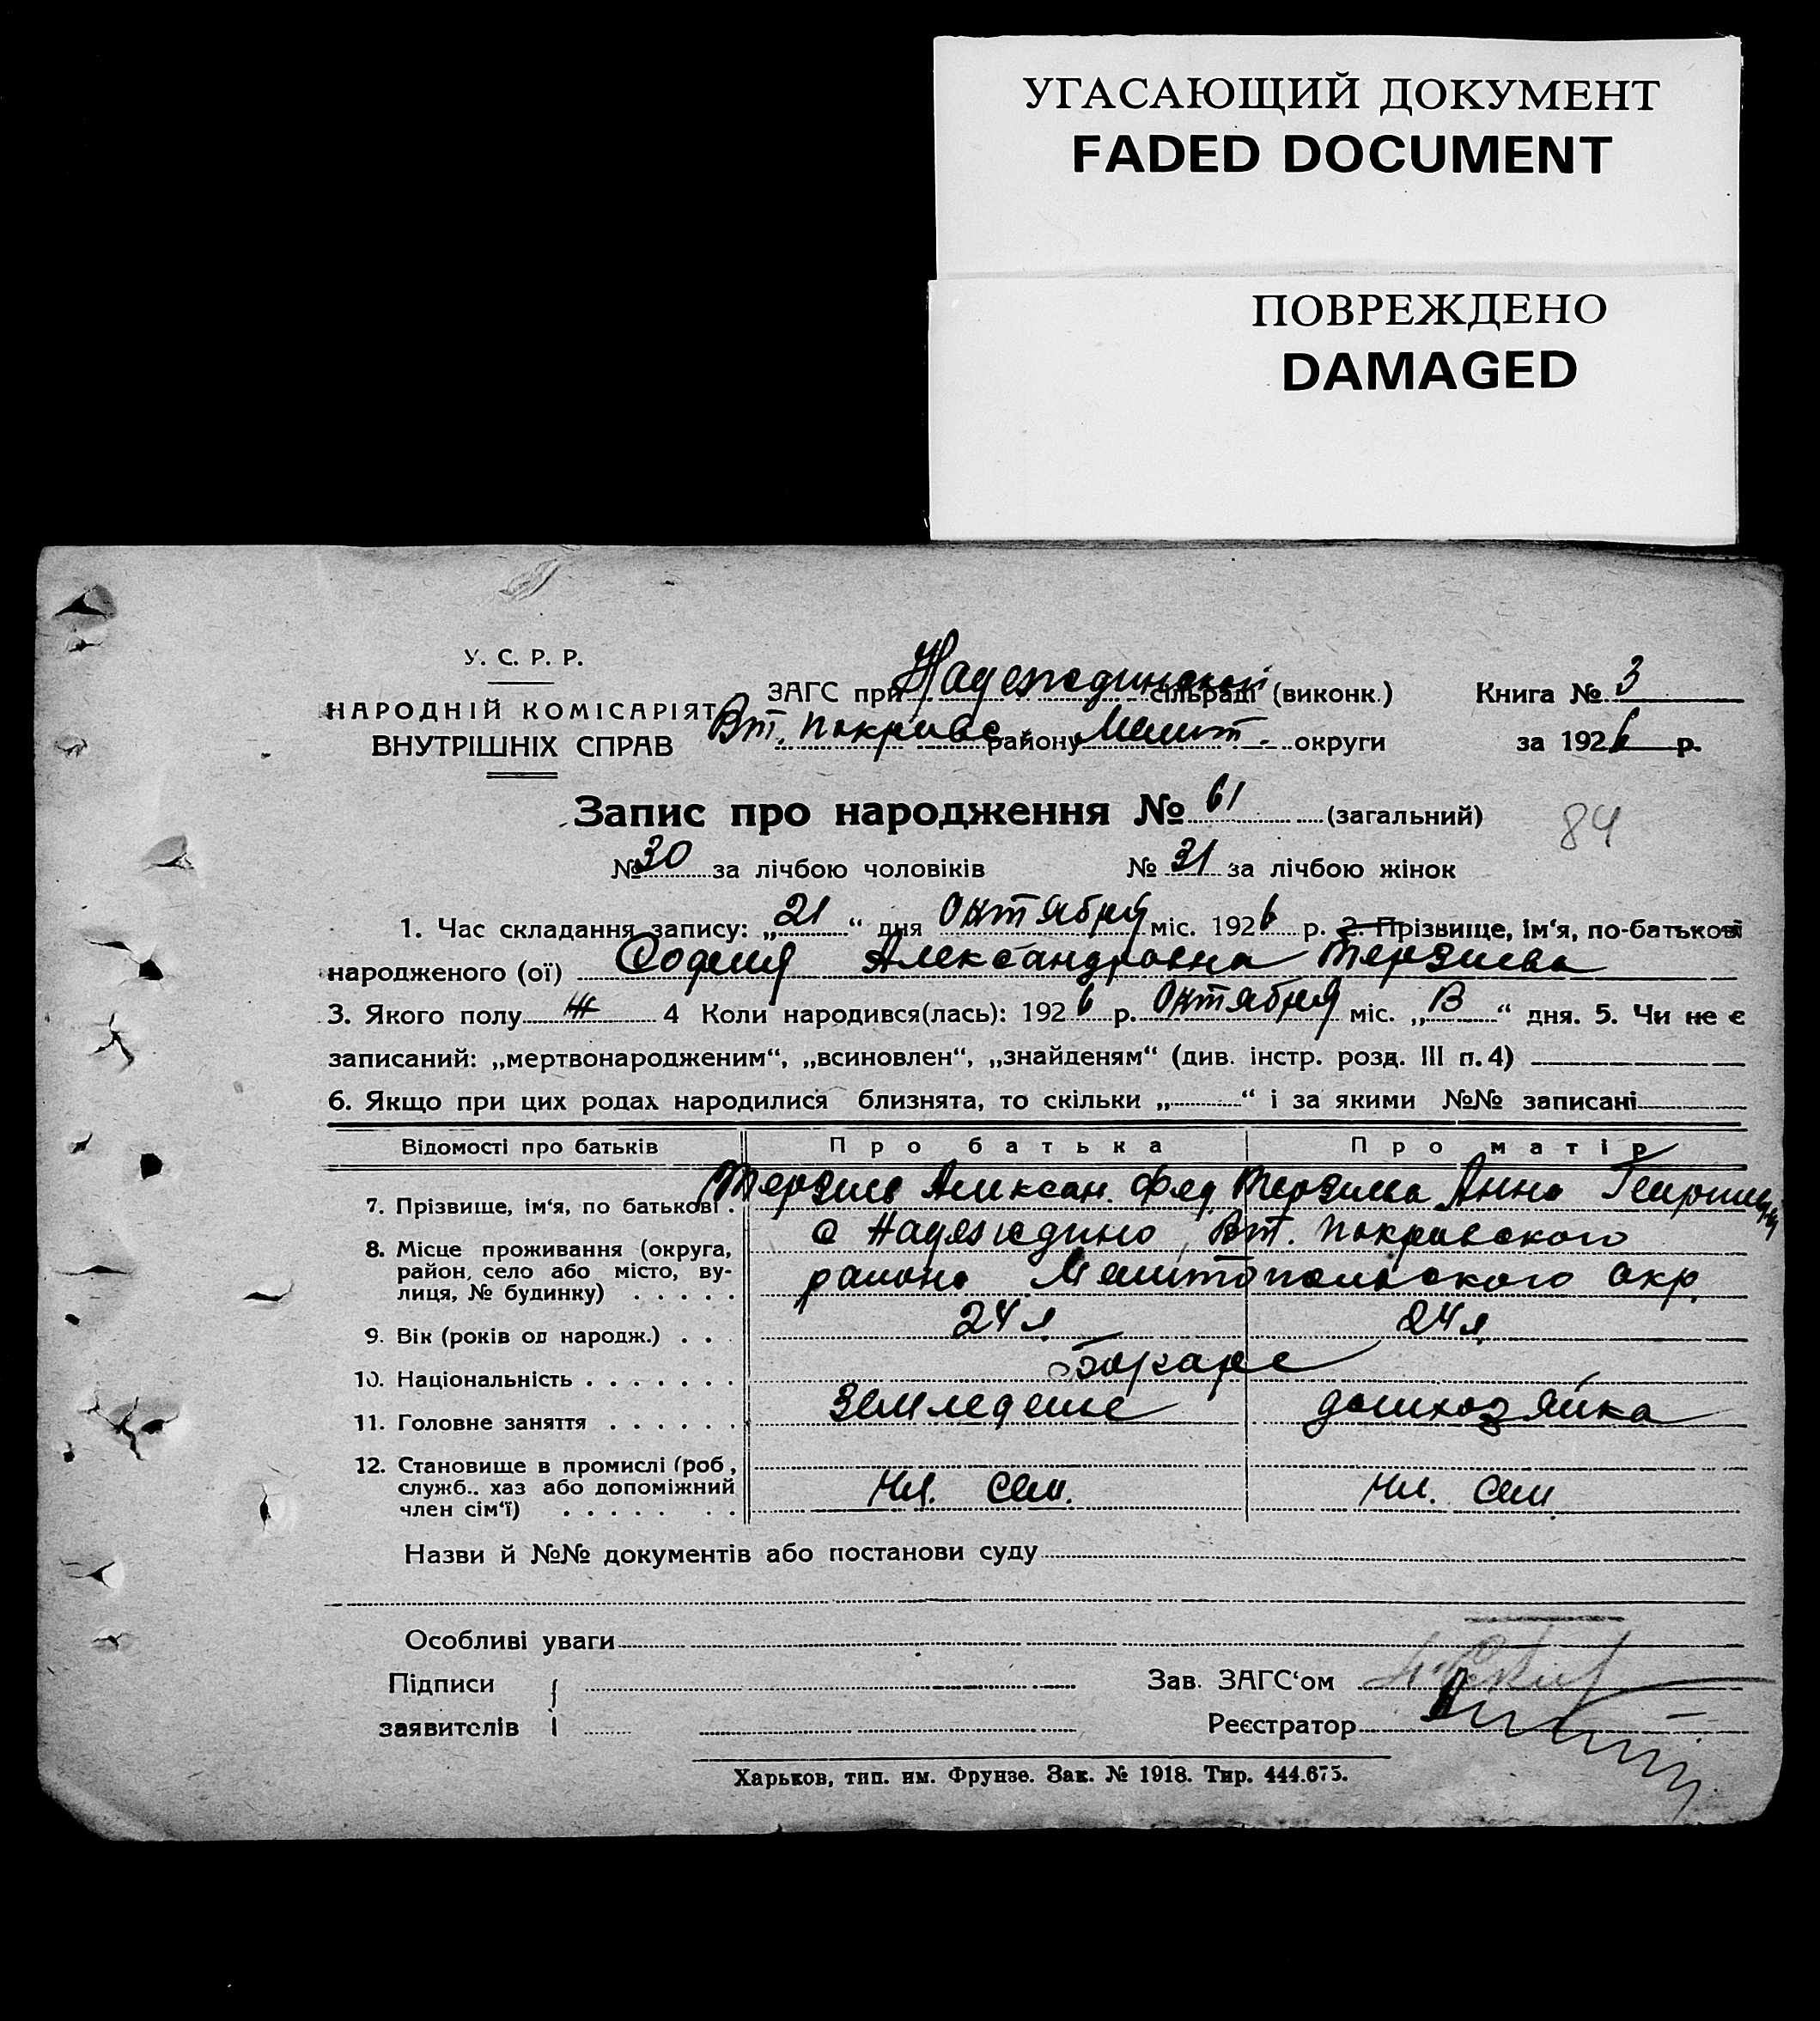 УГАСАЮЩИЙ ДОКУМЕНТ
FADED DOCUMENT
ПОВРЕЖДЕНО
DAMAGED
У. С. Р. Р.
НАРОДНІЙ КОМІСАРІЯТ
ВНУТРІШНІХ СПРАВ
ЗАГС при Надеждинской сільраді (виконк.)
Вт. Покривс. району Мелит. округи
Книга № 3
за 1926 р.
Запис про народження № 61 (загальний)
84
№ 30 за лічбою чоловіків № 31 за лічбою жінок
1. Час складання запису: „21“ дня Октября міс. 1926 р. 2. Прізвище, ім‘я, по-батькові
народженого (ої) София Александровна Терзиева
3. Якого полу ж 4 Коли народився(лась): 1926 р. Октября міс. „ “ дня. 5. Чи не є
записаний: „мертвонародженим“, „всиновлен“, „знайденям“ (див. інстр. розд. III п. 4)
6. Якщо при цих родах народилися близнята, то скільки „ “ і за якими №№ записані
Відомості про батьків Про батька Про матір
7. Прізвище, ім‘я, по батькові Терзиев Алексан. Фед. Терзиева Анна
8. Місце проживання (округа,
район, село або місто, ву-
лиця, № будинку)
с Надеждино, Вт. Покривского
района Мелитопольского окр.
9. Вік (років од народж.) 24 л. 24 л
10. Національність
11. Головне заняття Земледелие домхозяйка
12. Становище в промислі (роб,
служб.. хаз або допоміжний
член сім‘ї)
Чл. Сем. Чл. Сем
Назви й №№ документів або постанови суду
Особливі уваги
Підписи
заявителів
Зав. ЗАГС‘ом
Реєстратор
Харьков, тип. им. Фрунзе. Зак. № 1918. Тир. 444.675.